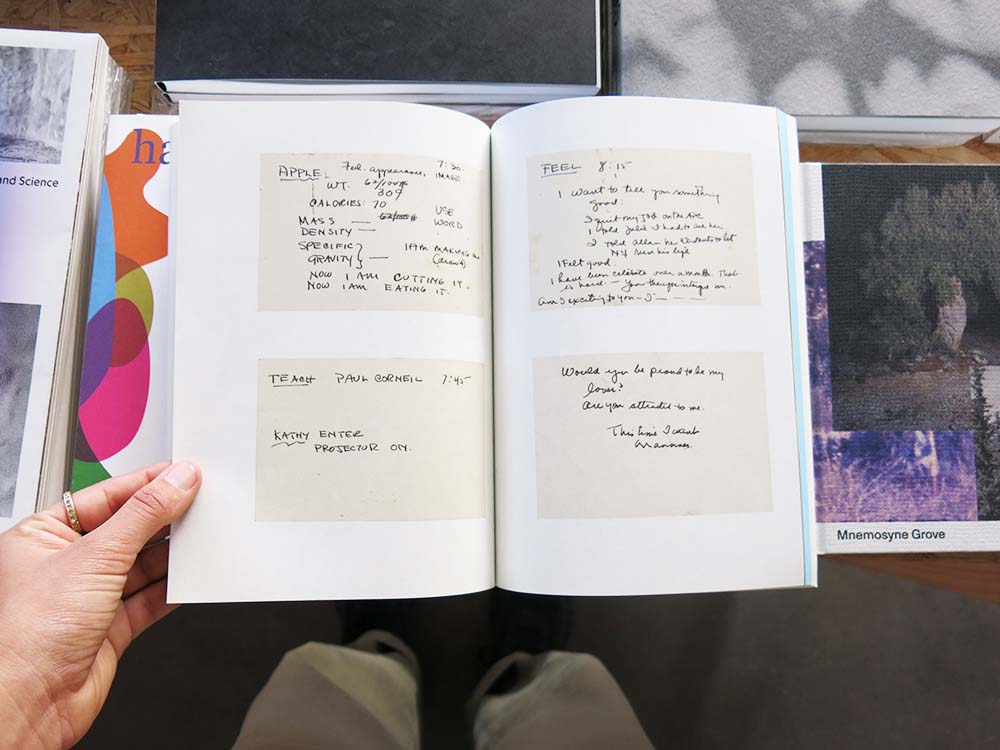 and Science
ha
APPLE: Feel. appearance, 7:30
IMAGE
WT. 62/100#
309
CALORIES: 70
MASS — USE
DENSITY — WORD
SPECIFIC
GRAVITY} — I AM MAKING
NOW I AM CUTTING IT.
NOW I AM EATING IT.
TEACH PAUL CORNEIL 7:45
KATHY ENTER
PROJECTOR ON.
FEEL 8:15
I want to tell you something
good:
I quit my job on the Ave
I told Julie I had to see her
I told Allan he to let
run his life
I felt good.
I have been celibate over a month. That
is hard. — You
Am I exciting to you — I — — — —
Would you be proud to be my
lover?
Are you attracted to me.
This time I want
Mnemosyne Grove